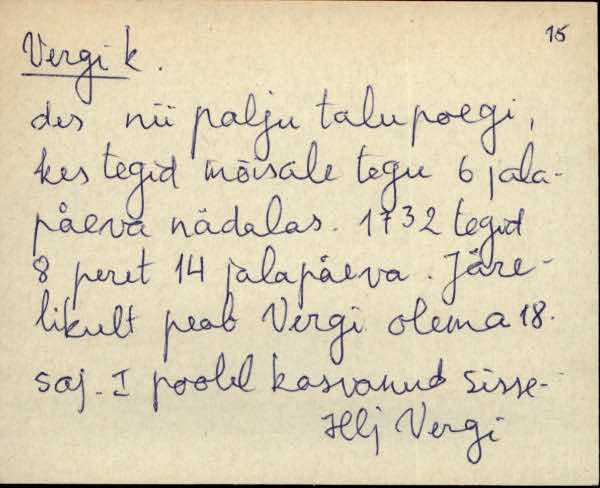 15
Vergi k.
des nii palju talupoegi,
kes tegid mõisale tegu 6 jala-
päeva nädalas. 1732 tegid
8 peret 14 jalapäeva. Järe-
likult peab Vergi olema 18.
saj. I poolel kasvanud sisse-
Hlj Vergi